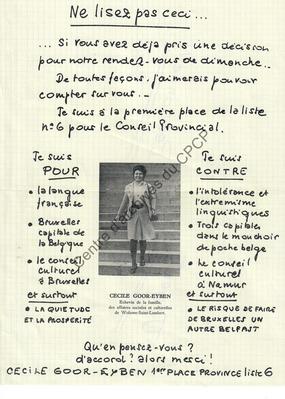 Ne lisez pas ceci...
... Si vous avez déjà pris une décision
pour notre rendez-vous de dimanche..
De toutes façons, j'aimerais pouvoir
compter sur vous...
Je suis à la première place de la liste
n°6 pour le Conseil Provincial.
Je suis
POUR
• la langue
française
• Bruxelles
capitale de
la Belgique
• le conseil
culturel à
Bruxelles
et surtout
• LA QUIETUDE
ET LA PROSPERITÉ
Je suis
CONTRE
• l'intolérance et
l'extremisme
linguistiques
• Trois capitales
dans le mouchoir
de poche belge
• Le conseil
culturel
à Namur
et surtout
• LE RISQUE DE FAIRE
DE BRUXELLES UN
AUTRE BELFAST
Centre d'archives du CPCP
CECILE GOOR-EYBEN
Echevin de la famille,
des affaires sociales et culturelles
de Woluwe-Saint-Lambert.
Qu'en pensez-vous?
d'accord? alors merci!
CECILE GOOR-EYBEN 1ère PLACE PROVINCE LISTE 6